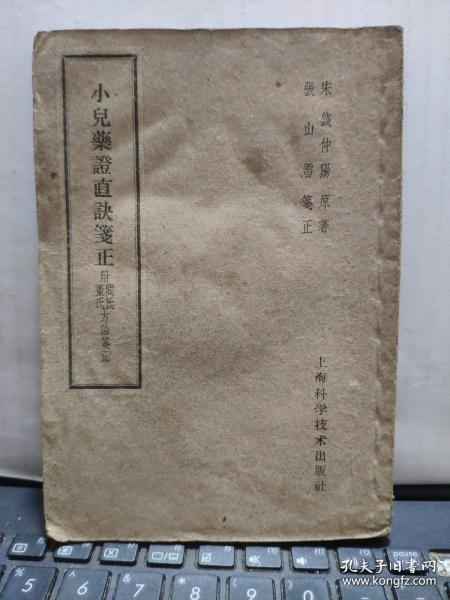 宋 錢仲陽 原著
張山雷 箋正
小兒藥證直訣箋正
附閻氏董氏方論箋正
上海科学技术出版社
pause
%
5
6
7
8
9
0
孔夫子旧书网
www.kongfz.com